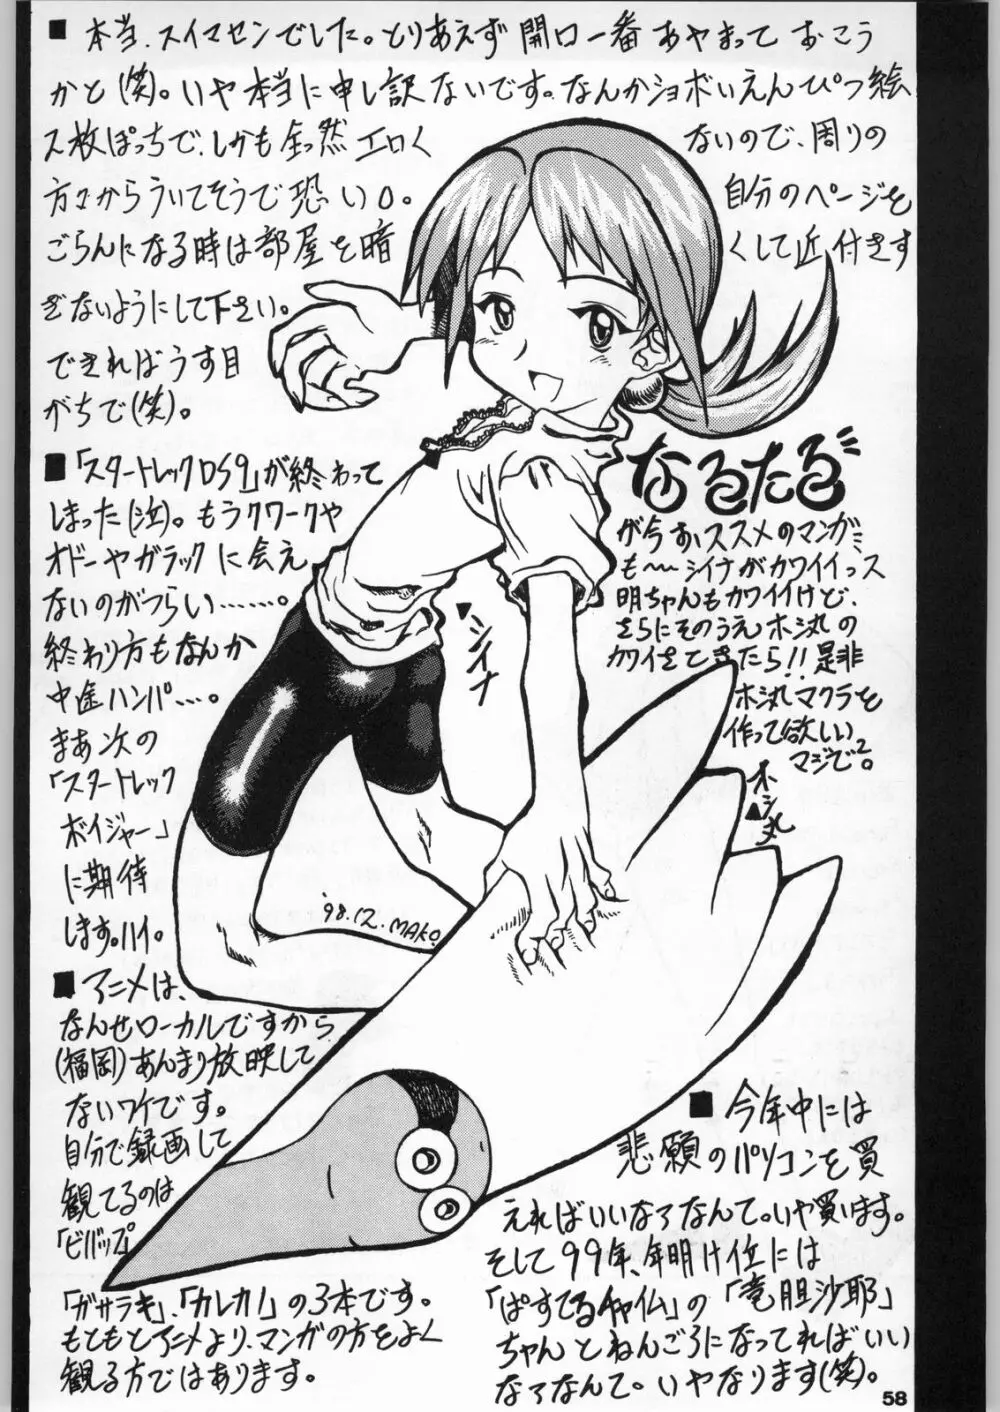 ■ 本当、スイマセンでした。とりあえず開口一番あやまっておこう
かと(笑)。いや本当に申し訳ないです。なんかショボいえんぴつ絵
2枚ぽっちで、しかも全然エロく
ないので、周りの
方々からういてそうで恐いロ。
自分のページを
ごらんになる時は部屋を暗
くして近付きす
ぎないようにして下さい。
できればうす目
がちで(笑)。
■「スタートレックDS9」が終わって
しまった(泣)。もうクワークや
オドーやガラックに会え
ないのがつらい……。
終わり方もなんか
中途ハンパ…。
まあ次の
「スタートレック
ボイジャー」
に期待
します。ハイ。
■アニメは、
なんせローカルですから
(福岡)あんまり放映して
ないワケです。
自分で録画して
観てるのは
「ビバップ」
「ガサラキ」、「カレカノ」の3本です。
もともとアニメより、マンガの方をよく
観る方ではあります。
なるたる
が今おススメのマンガ
も〜〜シイナがカワイイっス
明ちゃんもカワイイけど、
さらにそのうえホシ丸の
カワイさときたら!!是非
ホシ丸マクラを
作って欲しい
マジで。
▲シイナ
ホシ丸
'98.12.MAKO.
■今年中には
悲願のパソコンを買
えればいいなァなんて。いや買います。
そして99年、年明け位には
「ぱすてるチャイム」の「竜胆沙耶」
ちゃんとねんごろになってればいい
なァなんて。いやなります(笑)。
58